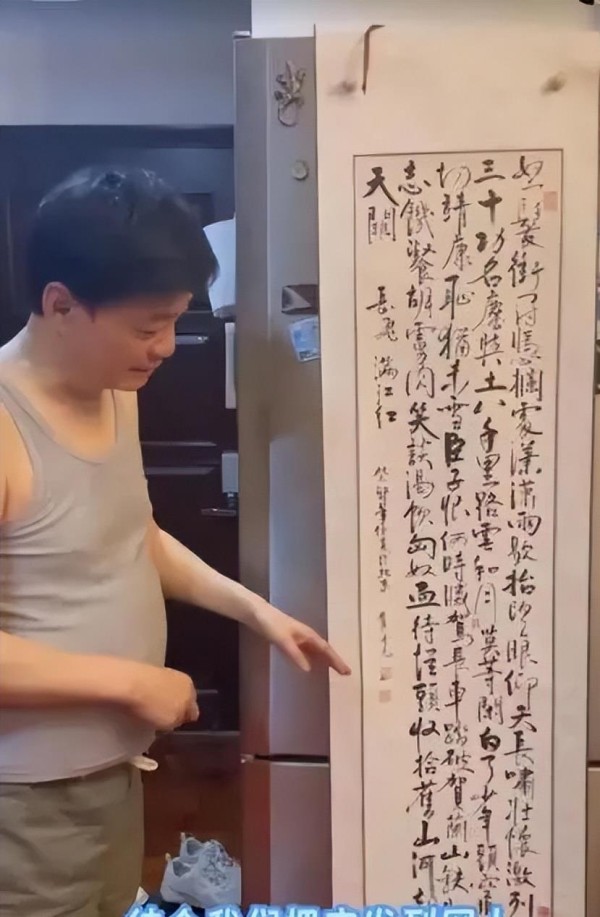 怒髮衝冠憑欄處瀟瀟雨歇抬望眼仰天長嘯壯懷激烈
三十功名塵與土八千里路雲和月莫等閑白了少年頭空
切靖康恥猶未雪臣子恨何時滅駕長車踏破賀蘭山缺
志饑餐胡虜肉笑談渴飲匈奴血待從頭收拾舊山河
天闕
岳飛 滿江红